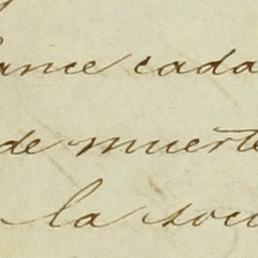 ance cada
de muerte
la soci